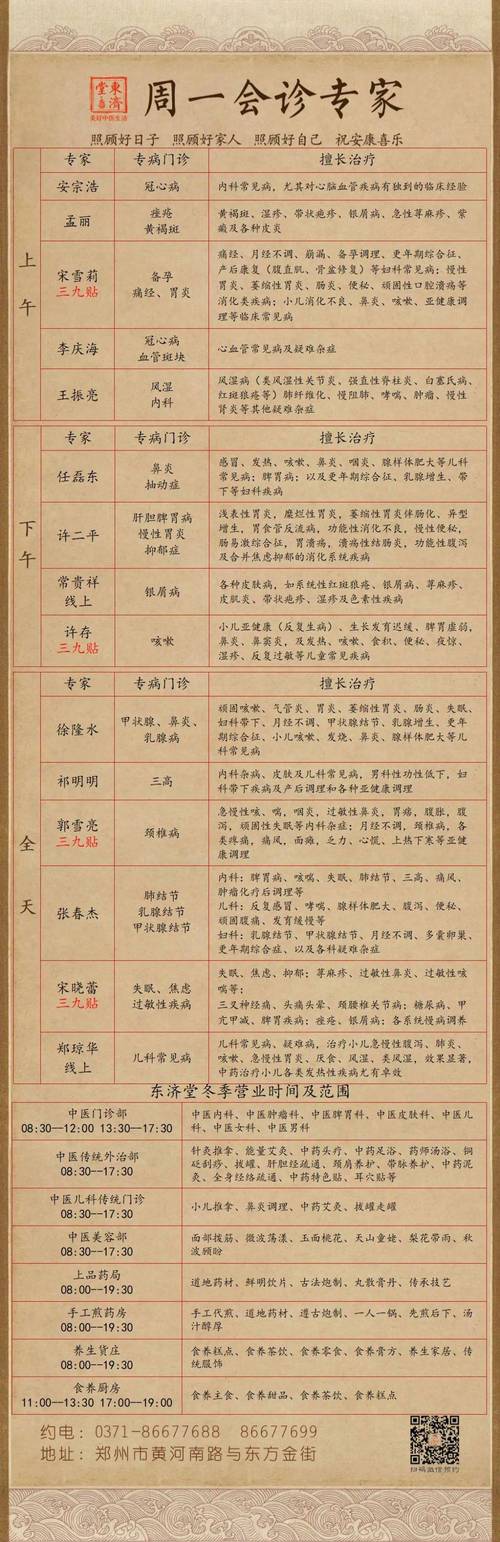 東濟堂
美好中医生活
周一会诊专家
照顾好日子 照顾好家人 照顾好自己 祝安康喜乐
上午
专家 专病门诊 擅长治疗
安宗浩 冠心病 内科常见病，尤其对心脑血管疾病有独到的临床经验
孟丽 痤疮
黄褐斑
黄褐斑、湿疹、带状疱疹、银屑病、急性荨麻疹、紫
癜及各种皮炎
宋雪莉
三九贴
备孕
痛经、胃炎
痛经、月经不调、崩漏、备孕调理、更年期综合征、
产后康复（腹直肌、骨盆修复）等妇科常见病；慢性
胃炎、萎缩性胃炎、肠炎、便秘、顽固性口腔溃疡等
消化类疾病；小儿消化不良、鼻炎、咳嗽、亚健康调
理等临床常见病
李庆海 冠心病
血管斑块
心血管常见病及疑难杂症
王振亮 风湿
内科
风湿病（类风湿性关节炎、强直性脊柱炎、白塞氏病、
红斑狼疮等）肺纤维化、慢阻肺、哮喘、肿瘤、慢性
肾炎等其他疑难杂症
下午
专家 专病门诊 擅长治疗
任磊东 鼻炎
抽动症
感冒、发热、咳嗽、鼻炎、咽炎、腺样体肥大等儿科
常见病；脾胃病；以及更年期综合征、乳腺增生、带
下等妇科疾病
许二平 肝胆脾胃病
慢性胃炎
抑郁症
浅表性胃炎，糜烂性胃炎，萎缩性胃炎伴肠化、异型
增生，胃食管反流病，功能性消化不良，慢性便秘，
肠易激综合征，胃溃疡，溃疡性结肠炎，功能性腹泻
及合并焦虑抑郁的消化系统疾病
常贵祥
线上
银屑病
各种皮肤病，如系统性红斑狼疮、银屑病、荨麻疹、
皮肌炎、带状疱疹、湿疹及色素性疾病
许存
三九贴
咳嗽
小儿亚健康（反复生病）、生长发育迟缓、脾胃虚弱，
鼻炎、鼻窦炎，及发热、咳嗽、食积、便秘、夜惊、
湿疹、反复过敏等儿童常见疾病
全天
专家 专病门诊 擅长治疗
徐隆水 甲状腺、鼻炎、
乳腺病
顽固咳嗽、气管炎、胃炎、萎缩性胃炎、肠炎、失眠、
妇科带下、月经不调、甲状腺结节、乳腺增生、更年
期综合征、小儿咳嗽、发烧、鼻炎、腺样体肥大等儿
科常见病
祁明明 三高
内科杂病、皮肤及儿科常见病，男科性功性低下，妇
科带下疾病及产后调理和各种亚健康调理
郭雪亮
三九贴
颈椎病
急慢性咳、喘，咽炎，过敏性鼻炎，胃痛，腹胀，腹
泻，顽固性失眠等内科杂症；月经不调，颈椎病，各
类疼痛，痛风，面瘫，乏力、心慌、上热下寒等亚健
康调理
张春杰 肺结节
乳腺结节
甲状腺结节
内科：脾胃病、咳喘、失眠、肺结节、三高、痛风、
肿瘤化疗后调理等
儿科：反复感冒、哮喘、腺样体肥大、腹泻、便秘、
顽固腹痛、发育缓慢等
妇科：乳腺结节、甲状腺结节、月经不调、多囊卵巢、
更年期综合症、以及各科疑难杂症
宋晓蕾
三九贴
失眠、焦虑
过敏性疾病
失眠、焦虑、抑郁；荨麻疹、过敏性鼻炎、过敏性咳
喘等；
三叉神经痛、头痛头晕、颈腰椎关节病；糖尿病、甲
亢甲减、脾胃疾病；痤疮、银屑病；各系统慢病调养
郑琼华
线上
儿科常见病
儿科常见病、疑难病，治疗小儿急慢性腹泻、肺炎、
咳嗽、急慢性胃炎、厌食、风湿、类风湿，效果显著，
中药治疗小儿各类发热性疾病尤有卓效
东济堂冬季营业时间及范围
中医门诊部
08:30--12:00 13:30--17:30
中医内科、中医肿瘤科、中医脾胃科、中医皮肤科、中医儿
科、中医女科、中医男科
中医传统外治部
08:30--17:30
针灸推拿、能量艾灸、中药头疗、中药足浴、药师汤浴、铜
砭刮痧、拔罐、肝胆经疏通、颈肩养护、带脉养护、中药泥
灸、全身经络疏通、中药特色贴、耳穴贴等
中医儿科传统门诊
08:30--17:30
小儿推拿、鼻炎调理、中药艾灸、拔罐走罐
中医美容部
08:30--17:30
面部拨筋、微波荡漾、玉面桃花、天山童姥、梨花带雨、秋
波顾盼
上品药局
08:00--19:30
道地药材、鲜明饮片、古法炮制、丸散膏丹、传承技艺
手工煎药房
08:00--19:30
手工代煎、道地药材、遵古炮制、一人一锅、先煎后下、汤
汁醇厚
养生货庄
08:00--19:30
食养糕点、食养茶饮、食养零食、食养膏方、养生家居、传
统服饰
食养厨房
11:00--13:30 17:00--19:00
食养主食、食养甜品、食养茶饮、食养糕点
约电：0371-86677688 86677699
地址：郑州市黄河南路与东方金街
扫码微信预约